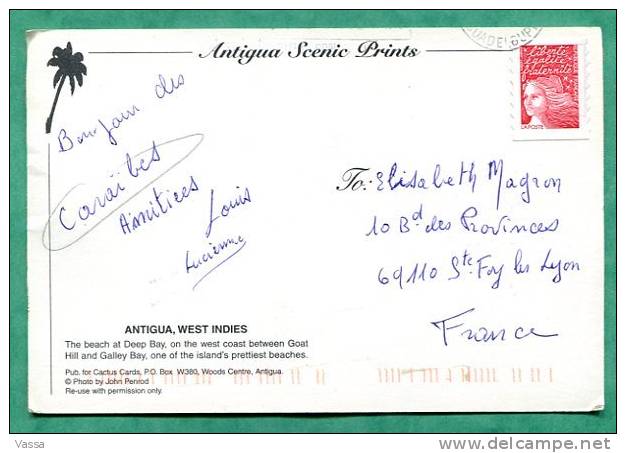 Antigua Scenic Prints
Bonjour des
Caraïbes
Amitiées
Louis
Lucienne
liberté
égalité
fraternité
LA POSTE
To: Elisabeth Magron
10 Bd des Provinces
69110 Ste Foy les Lyon
France
ANTIGUA, WEST INDIES
The beach at Deep Bay, on the west coast between Goat
Hill and Galley Bay, one of the island's prettiest beaches.
Pub. for Cactus Cards, P.O. Box W380, Woods Centre, Antigua.
© Photo by John Penrod
Re-use with permission only.
Vassa
delcampe.net